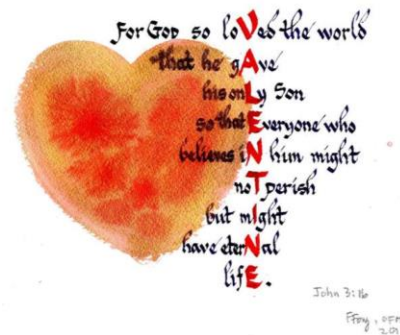 For God so loVed the world
that he gAve
his onLy Son
so that Everyone who
believes iN him might
noT perish
but mIght
have eterNal
lifE.
John 3:16